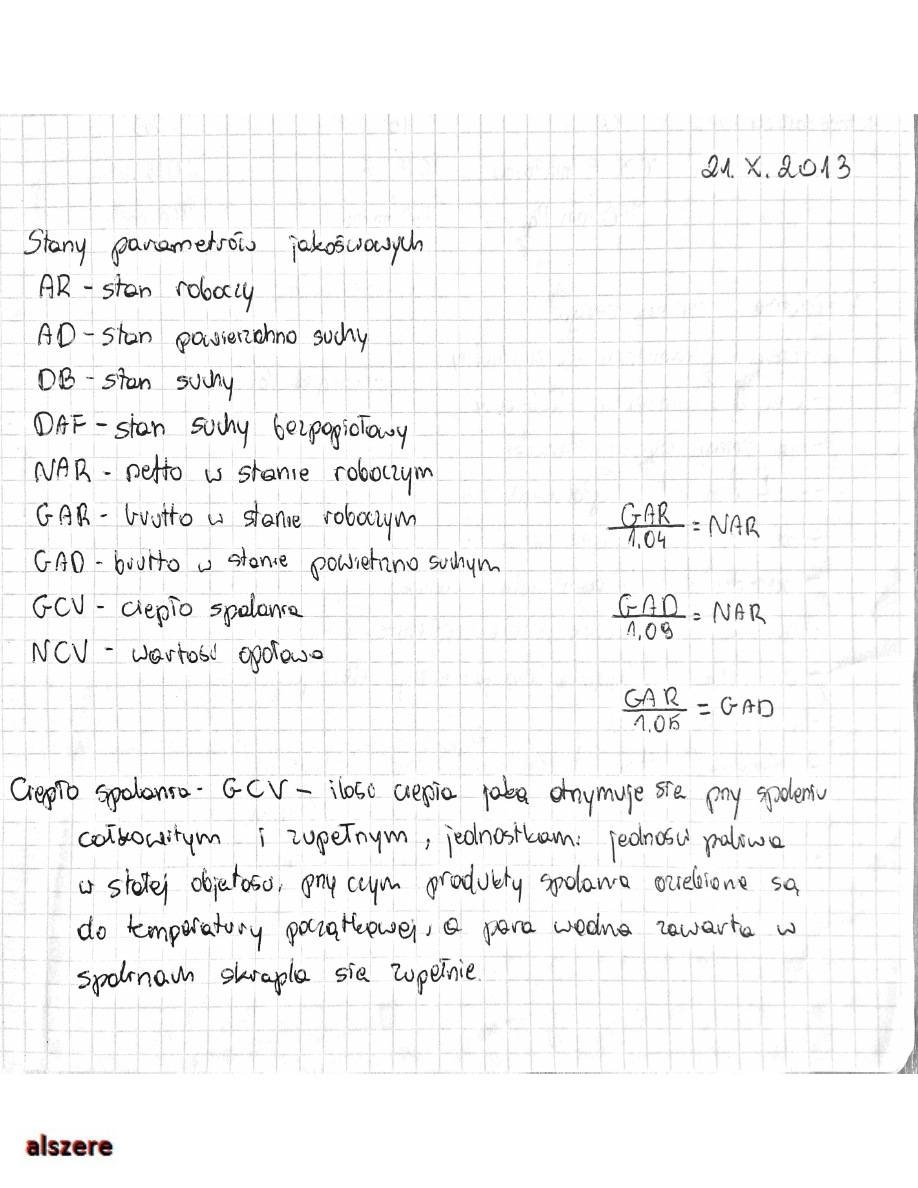 21. X. 2013
Stany parametrów jakościowych
AR - stan roboczy
AD - stan powierzchno suchy
DB - stan suchy
DAF - stan suchy bezpopiołowy
NAR - netto w stanie roboczym
GAR - brutto w stanie roboczym
GAR / 1,04 = NAR
GAD - brutto w stanie powietrzno suchym
GCV - ciepło spalania
GAD / 1,09 = NAR
NCV - wartość opałowa
GAR / 1.05 = GAD
Ciepło spalania - GCV - ilość ciepła jaką otrzymuje się przy spaleniu
całkowitym i zupełnym, jednostkam: jedności paliwa
w stałej objętości, przy czym produkty spalania oziębione są
do temperatury początkowej, a para wodna zawarta w
spalinach skrapla się zupełnie.
alszere